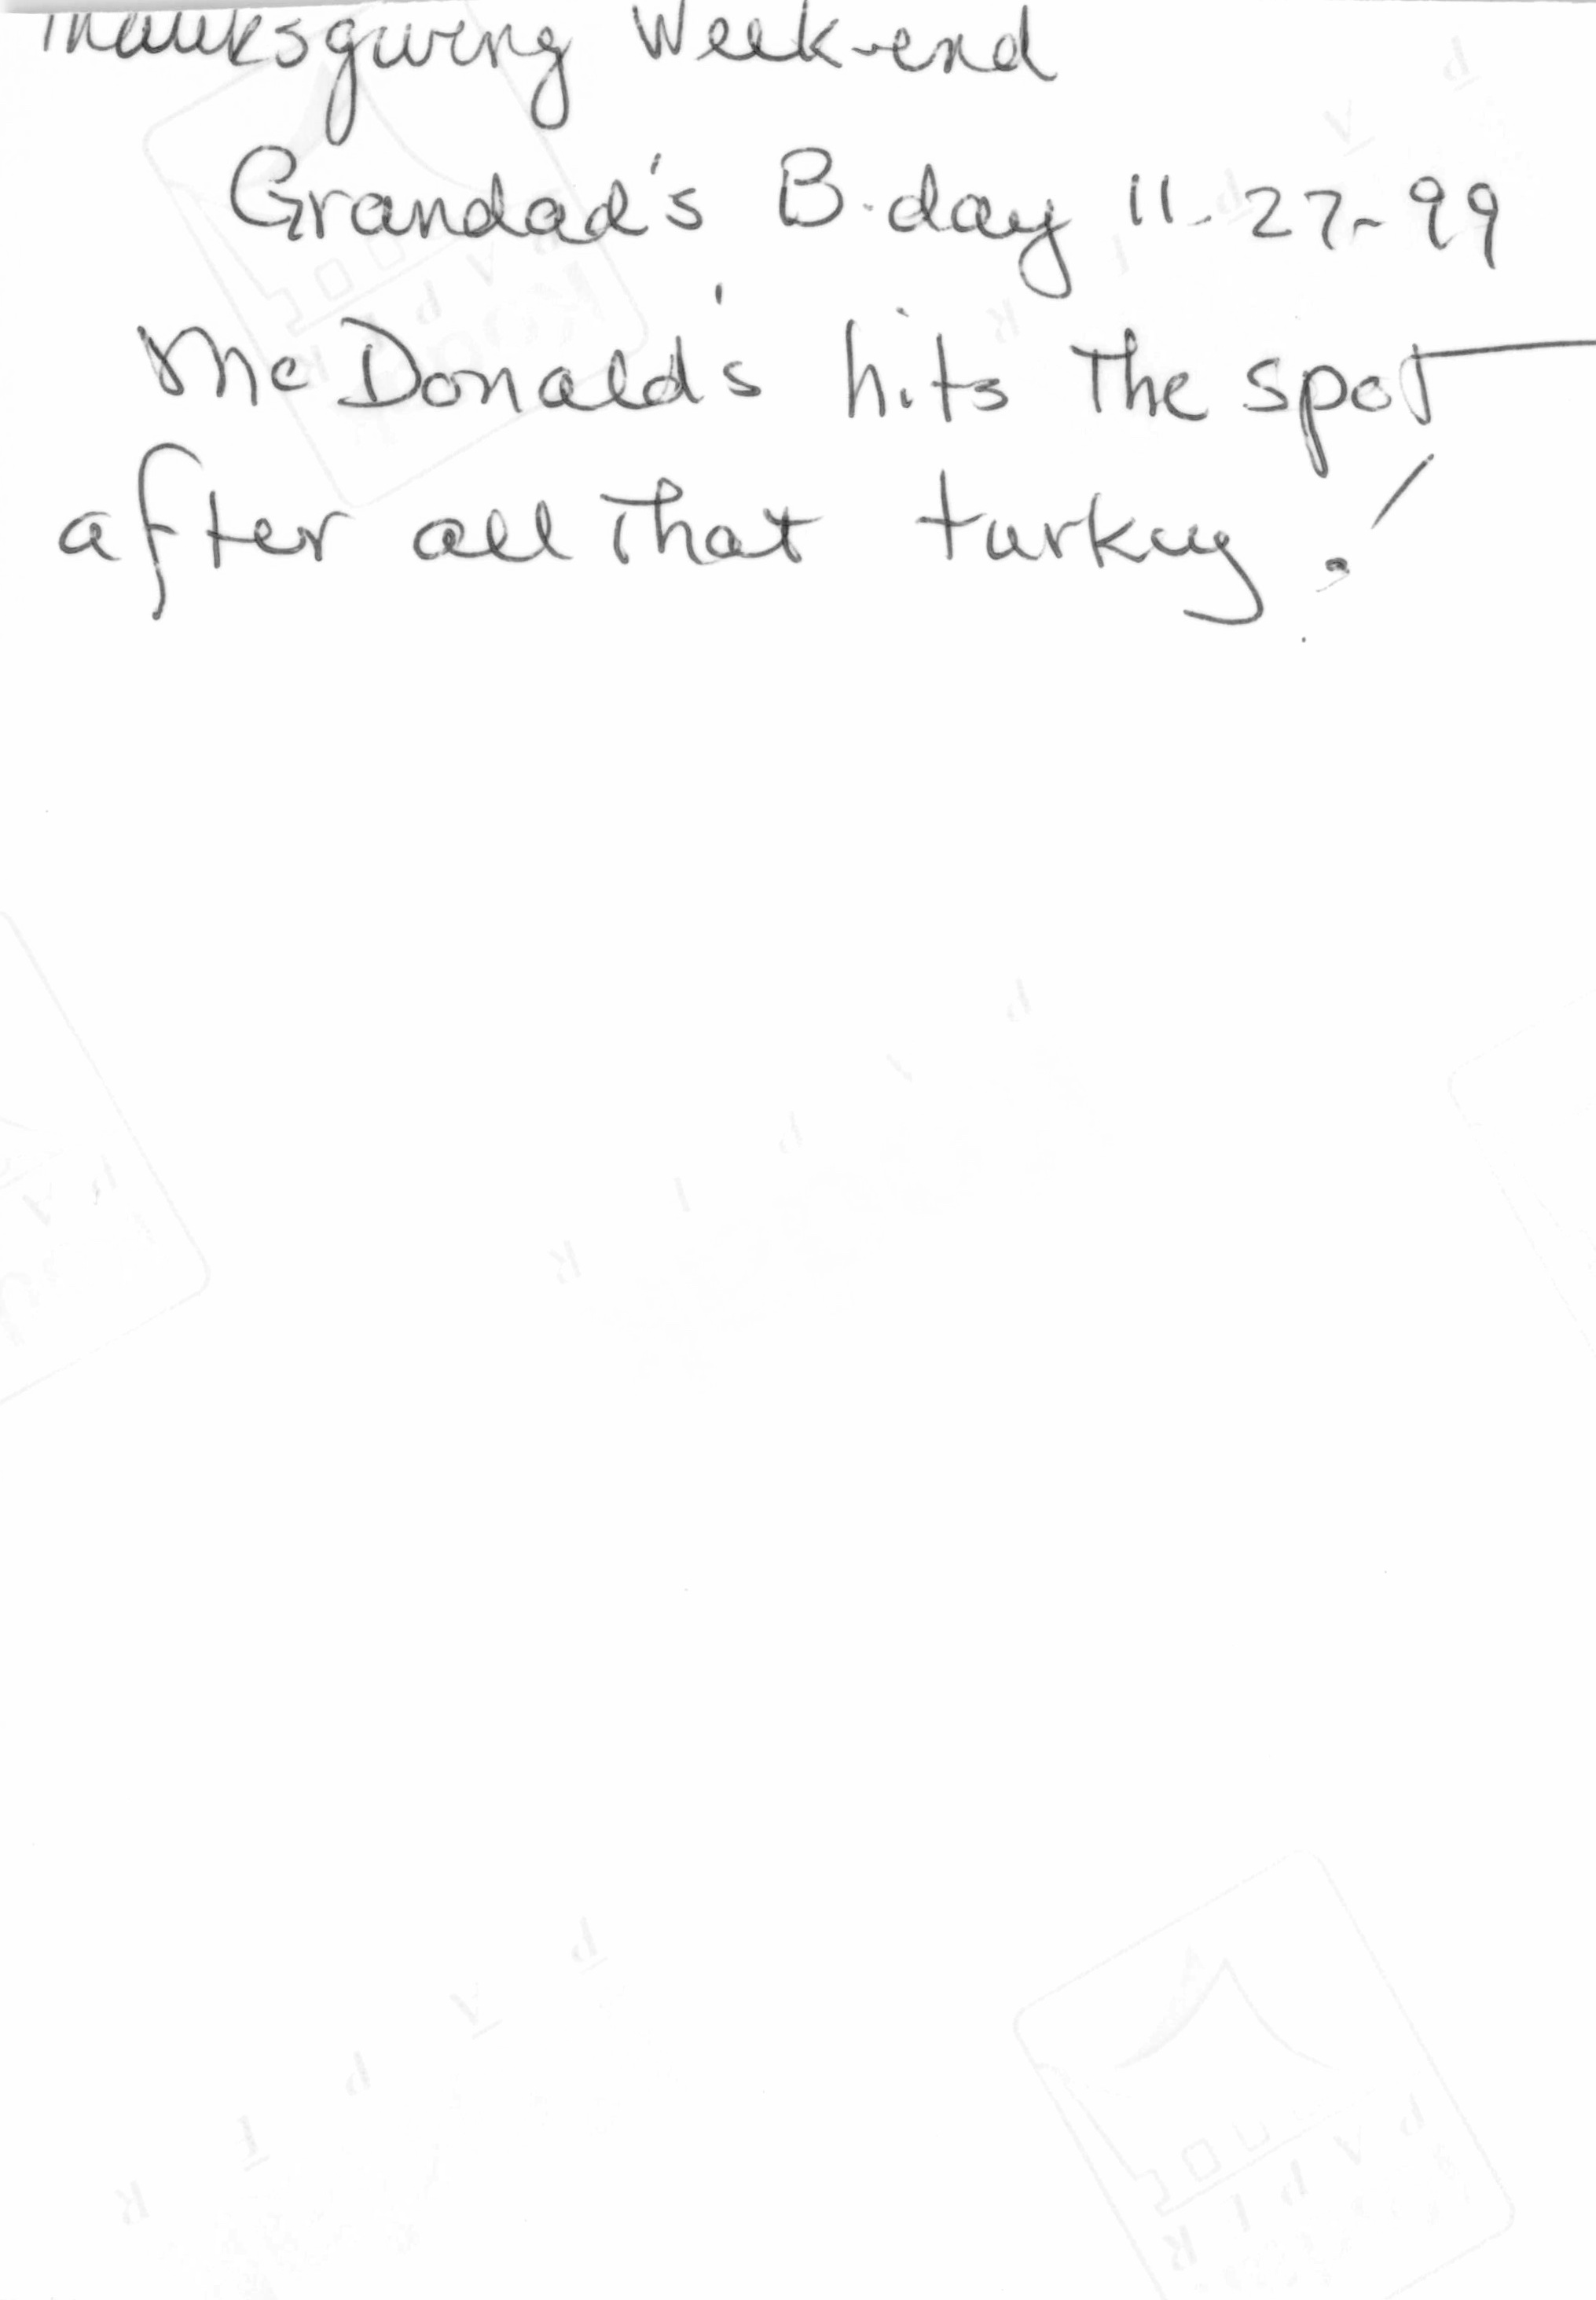 Thanksgiving Week-end
Grandad's B-day 11-27-99
McDonald's hits the spot
after all that turkey!